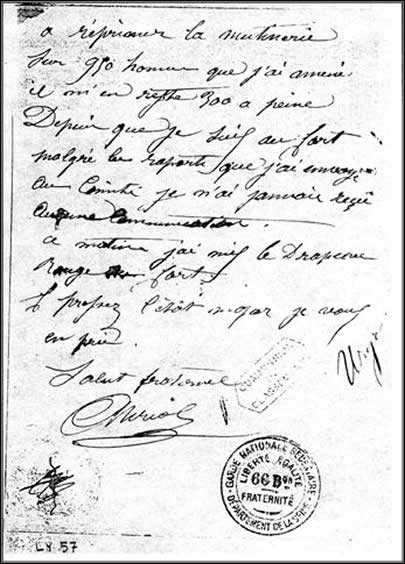 a réprimer la mutinerie
Sur 950 homme que j'ai amené
il m'en reste 300 a peine
Depuis que je suis au fort
malgré les raports que j'ai envoyé
au Comité je n'ai jamais reçû
aucune Communication.
ce matin j'ai mis le Drapeau
Rouge au fort
Et prenez l'état major je vous
en prie.
Salut fraternel
GARDE NATIONALE SÉDENTAIRE
LIBERTÉ EGALITÉ
66 Bon
FRATERNITÉ
DÉPARTEMENT DE LA SEINE
Ly 57